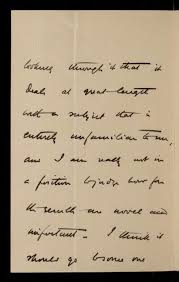 looking through it that it
deals at great length
with a subject that is
entirely unfamiliar to me,
and I am really not in
a position to judge how far
the results are novel and
important. I think it
should go to some one